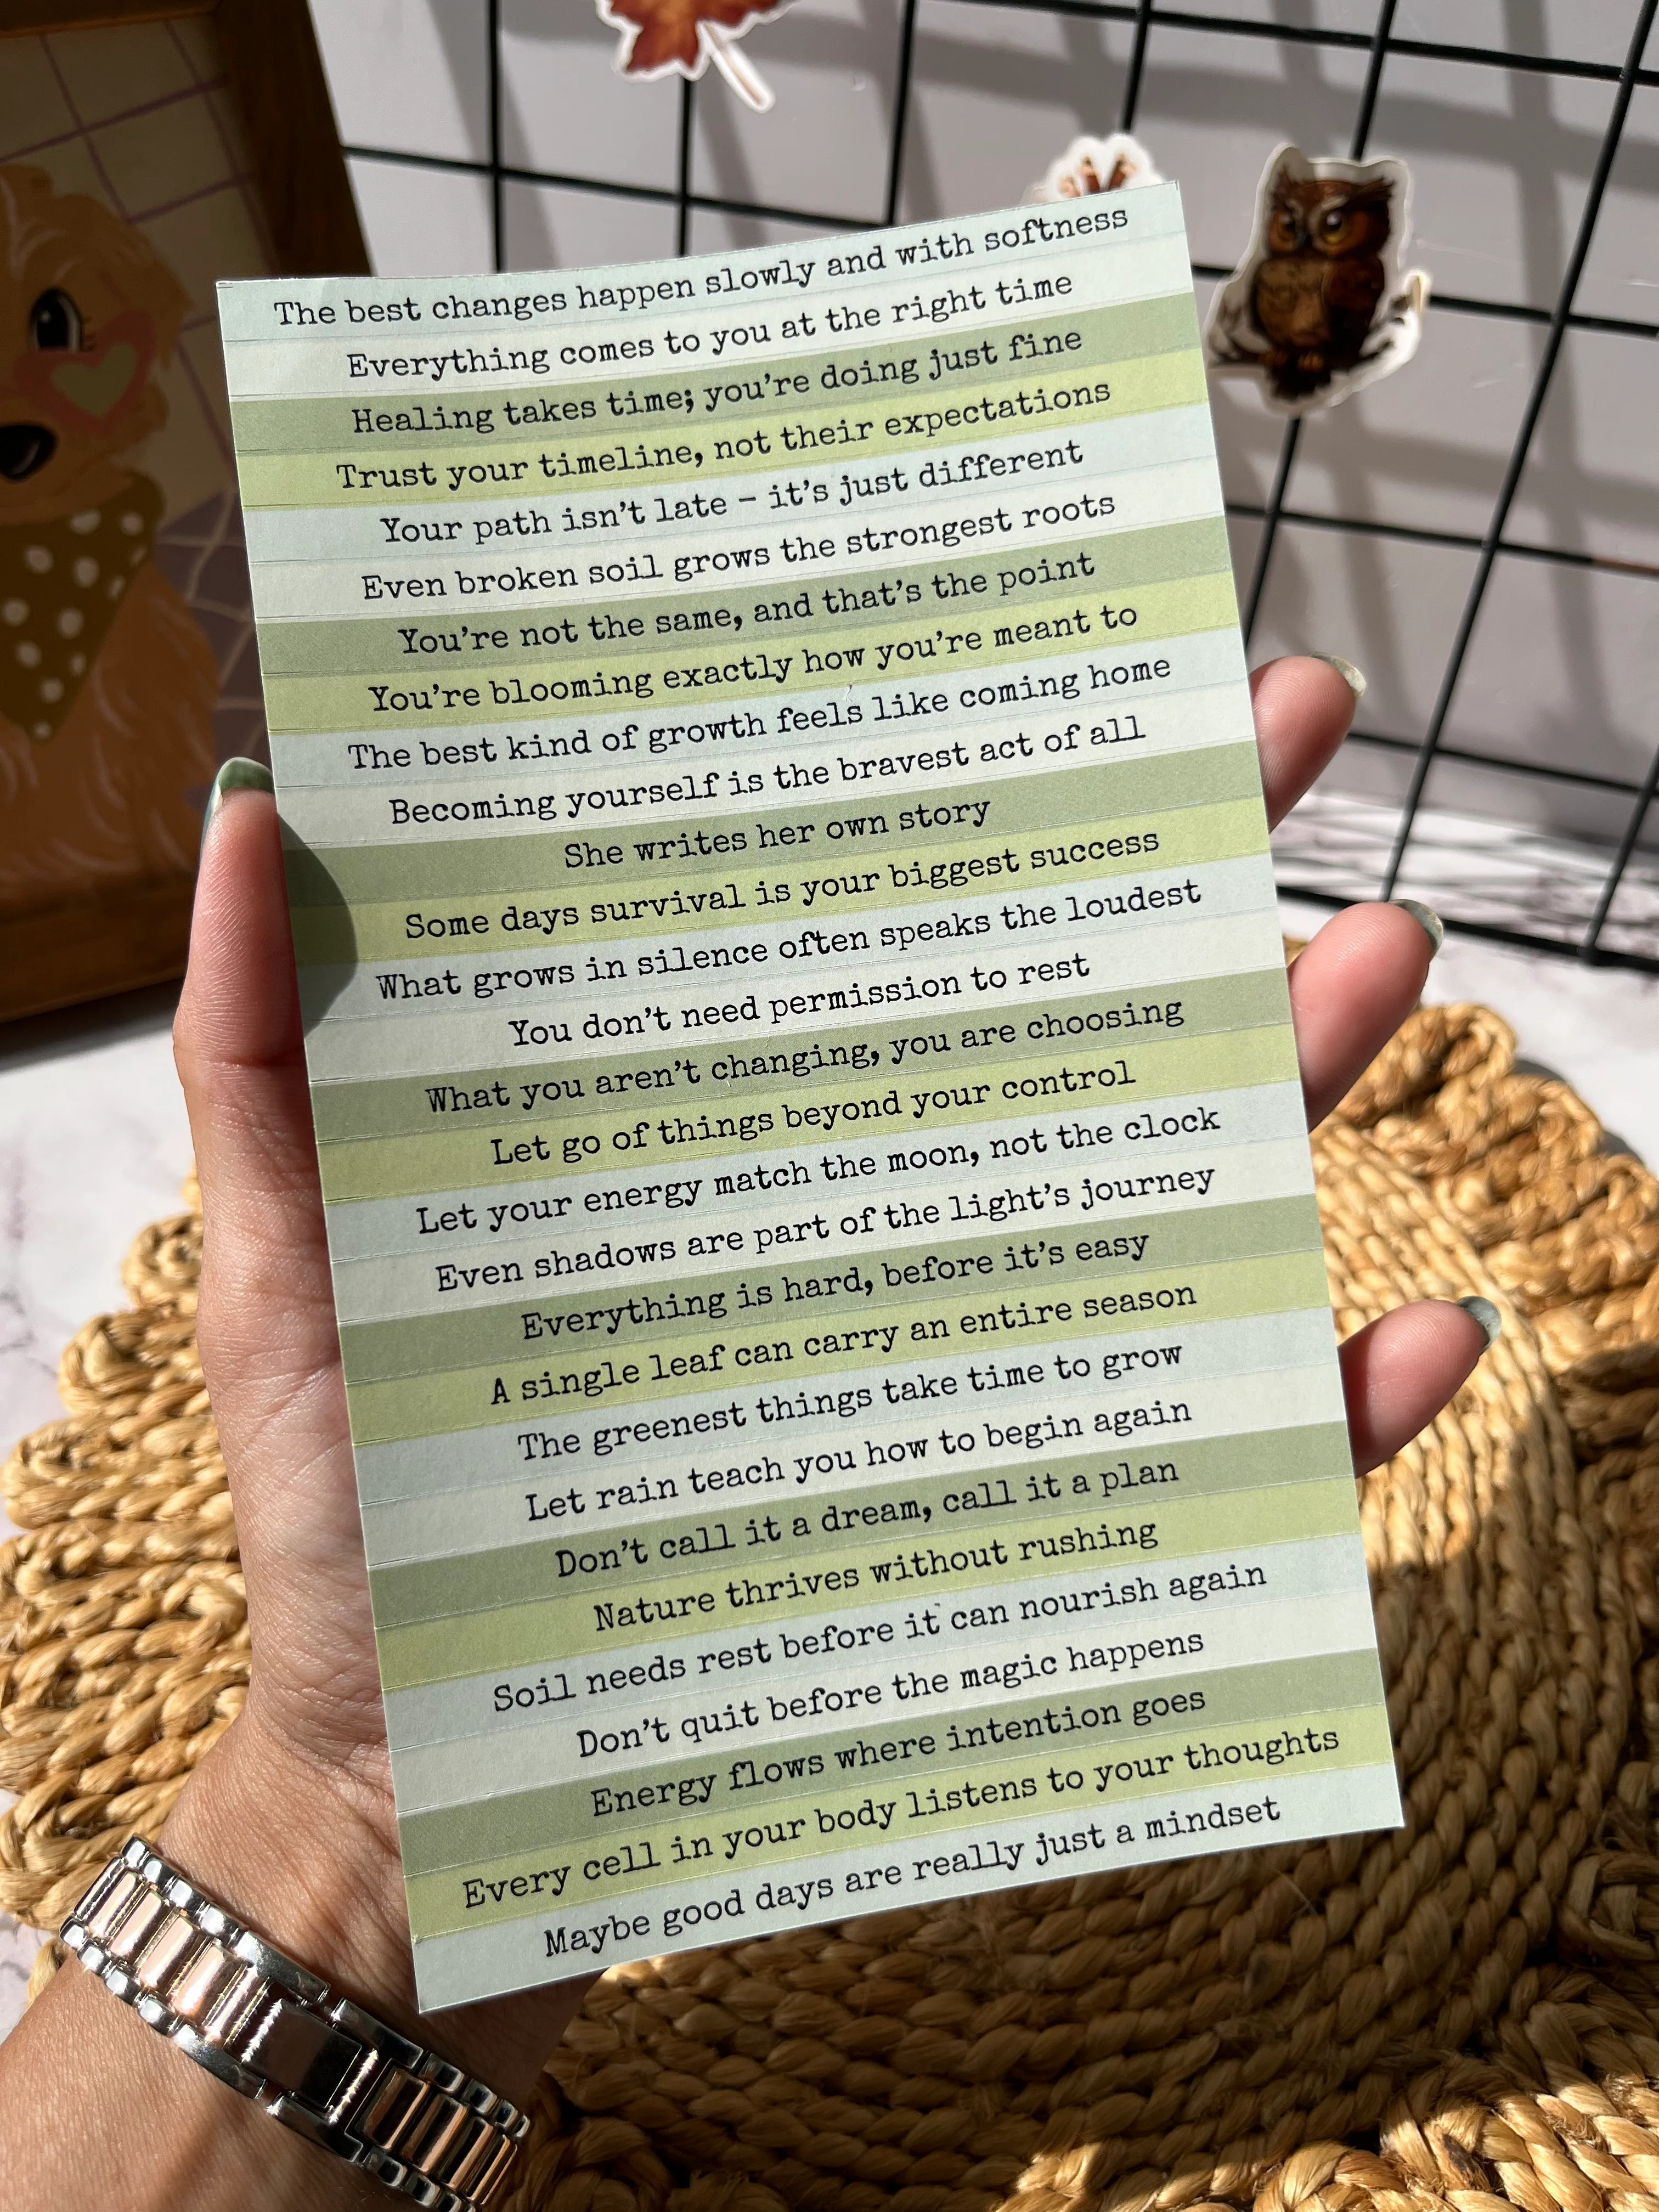 The best changes happen slowly and with softness
Everything comes to you at the right time
Healing takes time; you're doing just fine
Trust your timeline, not their expectations
Your path isn't late – it's just different
Even broken soil grows the strongest roots
You're not the same, and that's the point
You're blooming exactly how you're meant to
The best kind of growth feels like coming home
Becoming yourself is the bravest act of all
She writes her own story
Some days survival is your biggest success
What grows in silence often speaks the loudest
You don't need permission to rest
What you aren't changing, you are choosing
Let go of things beyond your control
Let your energy match the moon, not the clock
Even shadows are part of the light's journey
Everything is hard, before it's easy
A single leaf can carry an entire season
The greenest things take time to grow
Let rain teach you how to begin again
Don't call it a dream, call it a plan
Nature thrives without rushing
Soil needs rest before it can nourish again
Don't quit before the magic happens
Energy flows where intention goes
Every cell in your body listens to your thoughts
Maybe good days are really just a mindset